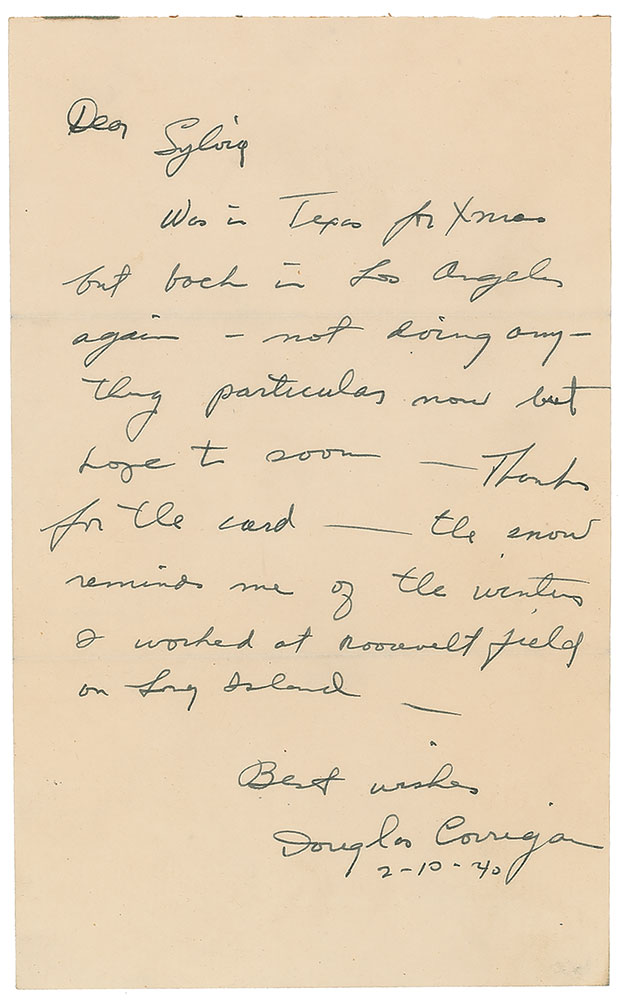 Dear Sylvia
Was in Texas for Xmas
but back in Los Angeles
again – not doing any–
thing particular now but
hope to soon — Thanks
for the card — the snow
reminds me of the winters
I worked at Roosevelt field
on Long Island —
Best wishes
Douglas Corrigan
2-10-40